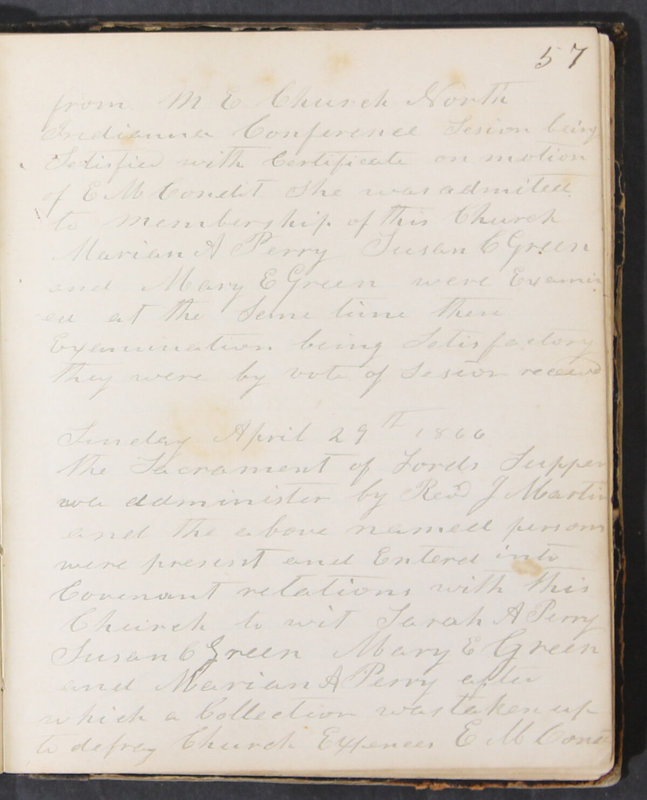 57
from M E Church North
Indianna Conference Sesion being
Satisfied with Certificate on motion
of E M Condit She was admited
to membership of this Church
Marian A Perry Susan C Green
and Mary E Green were Examin
ed at the Same time then
Examination being Satisfactory
they were by vote of Sesion received
Sunday April 29th 1866
the Sacrament of Lords Supper
was administer by Revd J Martin
and the above named persons
were present and Entered into
Covenant relations with this
Church to wit Sarah A Perry
Susan C Green Mary E Green
and Marian A Perry after
which a Collection was taken up
to defray Church Expences E M Cond